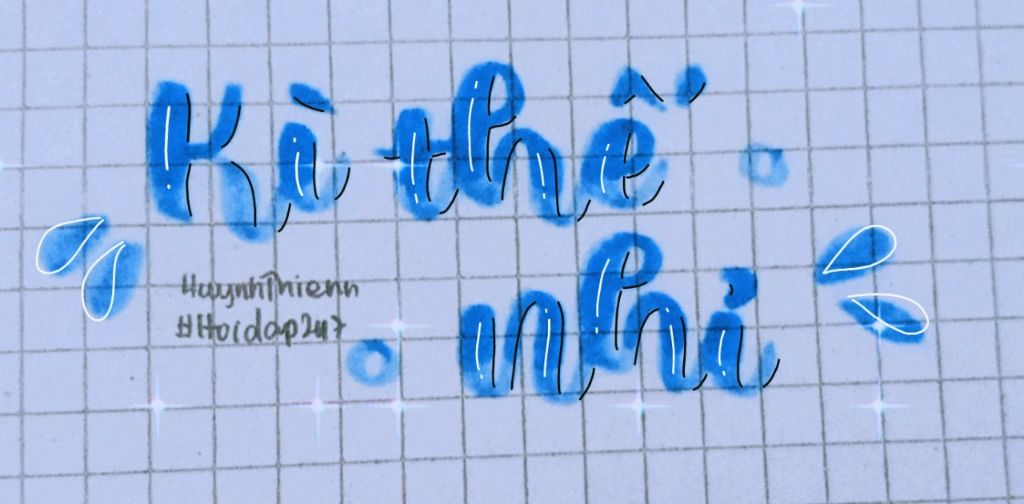 Kì thế
nhỉ
HuynhThienn
#Hoidap247